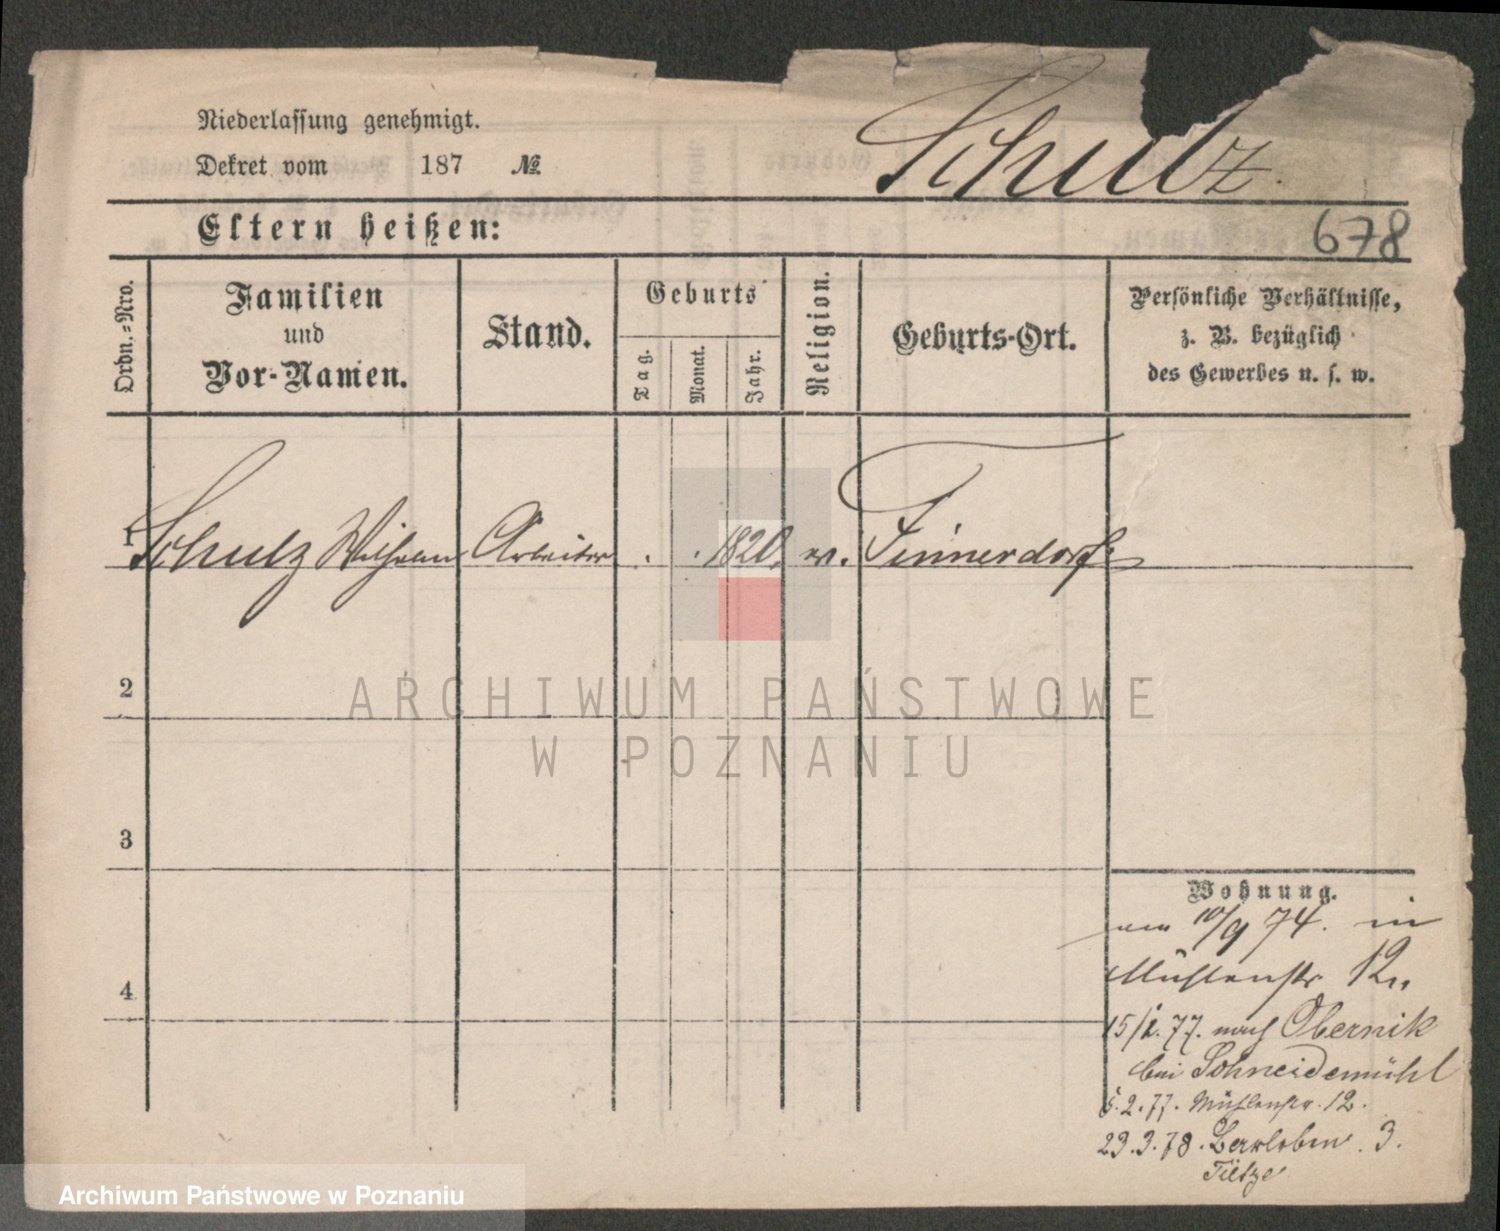 Niederlassung genehmigt.
Dekret vom 187 №
Schulz.
Eltern heißen:
678
Ordn.=Nro.
Familien
und
Vor-Namen.
Stand.
Geburts
Tag.
Monat.
Jahr.
Religion.
Geburts-Ort.
Persönliche Verhältnisse,
z. B. bezüglich
des Gewerbes u. s. w.
1 Schulz Wilhelm Arbeiter . . 1820.
2
ARCHIWUM PAŃSTWOWE
W POZNANIU
3
Wohnung.
10/9 74. in
Mühlenstr 12
4
15/1. 77. nach Obernik
bei Schneidemühl
5.2.77. Mühlenstr. 12.
23.3.78. 3.
Tietze
Archiwum Państwowe w Poznaniu